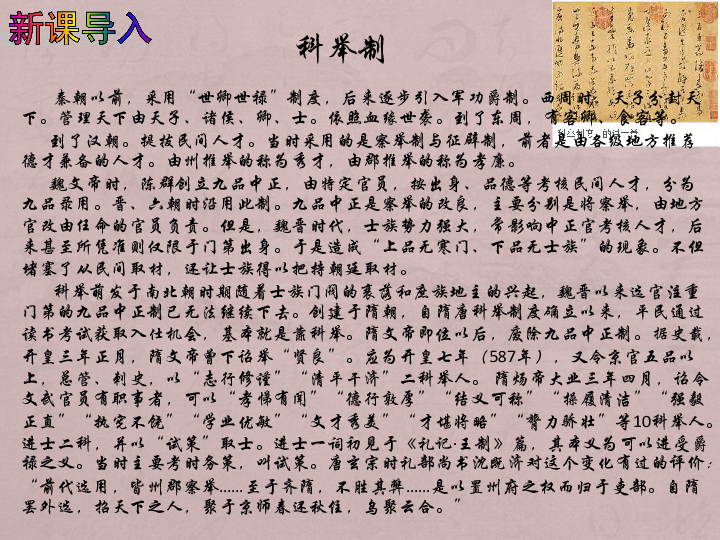 新课导入
科举制
秦朝以前，采用“世卿世禄”制度，后来逐步引入军功爵制。西周时，天子分封天
下。管理天下由天子、诸侯、卿、士。依照血缘世袭。到了东周，有客卿、食客等。
到了汉朝。提拔民间人才。当时采用的是察举制与征辟制，前者是由各级地方推荐
德才兼备的人才。由州推举的称为秀才，由郡推举的称为孝廉。
魏文帝时，陈群创立九品中正，由特定官员，按出身、品德等考核民间人才，分为
九品录用。晋、六朝时沿用此制。九品中正是察举的改良，主要分别是将察举，由地方
官改由任命的官员负责。但是，魏晋时代，士族势力强大，常影响中正官考核人才，后
来甚至所凭准则仅限于门第出身。于是造成“上品无寒门、下品无士族”的现象。不但
堵塞了从民间取材，还让士族得以把持朝廷取材。
科举萌发于南北朝时期随着士族门阀的衰落和庶族地主的兴起，魏晋以来选官注重
门第的九品中正制已无法继续下去。创建于隋朝，自隋唐科举制度确立以来，平民通过
读书考试获取入仕机会，基本就是靠科举。隋文帝即位以后，废除九品中正制。据史载，
开皇三年正月，隋文帝曾下诏举“贤良”。应为开皇七年（587年），又令京官五品以
上，总管、刺史，以“志行修谨”“清平干济”二科举人。 隋炀帝大业三年四月，诏令
文武官员有职事者，可以“孝悌有闻”“德行敦厚”“结义可称”“操履清洁”“强毅
正直”“执宪不饶”“学业优敏”“文才秀美”“才堪将略”“膂力骄壮”等10科举人。
进士二科，并以“试策”取士。进士一词初见于《礼记·王制》篇，其本义为可以进受爵
禄之义。当时主要考时务策，叫试策。唐玄宗时礼部尚书沈既济对这个变化有过的评价：
“前代选用，皆州郡察举……至于齐隋，不胜其弊……是以置州府之权而归于吏部。自隋
罢外选，招天下之人，聚于京师春还秋住，乌聚云合。”